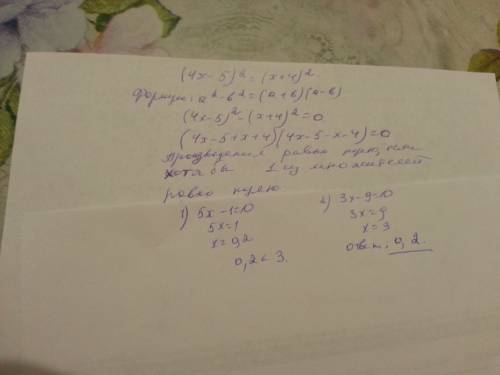 (4x-5)² = (x+4)².
Формула: a²-b²=(a+b)(a-b)
(4x-5)²-(x+4)²=0
(4x-5+x+4)(4x-5-x-4)=0
Произведение равно нулю, если
хотя бы 1 из множителей
равно нулю
1) 5x-1=0
5x=1
x=0,2
2) 3x-9=0
3x=9
x=3
0,2<3.
ответ: 0,2.